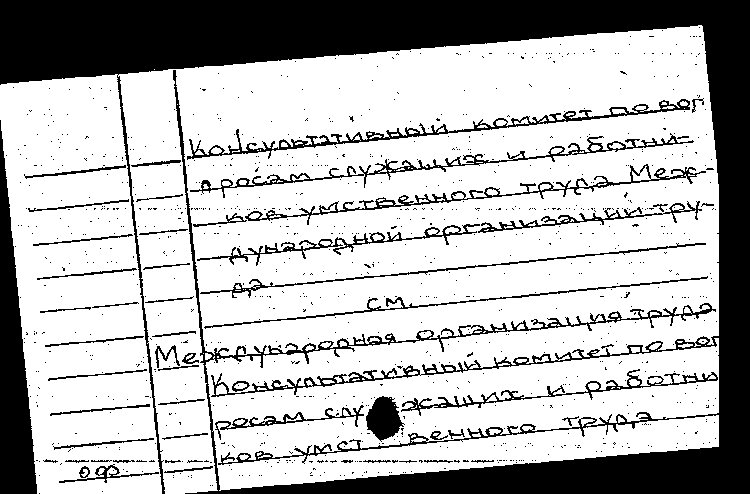 Консультативный комитет по воп
росам служащих и работни-
ков умственного труда Меж-
дународной организаций тру-
да.
см.
Международная организация труда
Консультативный комитет по воп
росам служащих и работни
ков умственного труда.
оф